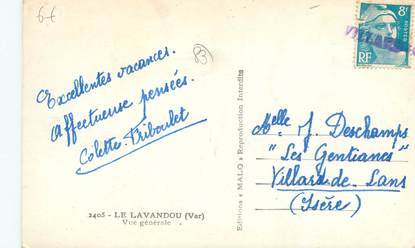 6€
83
Excellentes vacances.
Affectueuse pensées.
Colette Triboulet
2405 - LE LAVANDOU (Var)
Vue générale
Editions "MALO" Reproduction Interdite
8F
RF
VILLARD
Melle J. Deschamps
"Les Gentianes"
Villard-de-Lans
(Isère)